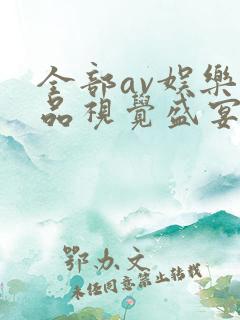 全部av娱樂
品視覺盛宴
鄂办文
未经同意禁止转载